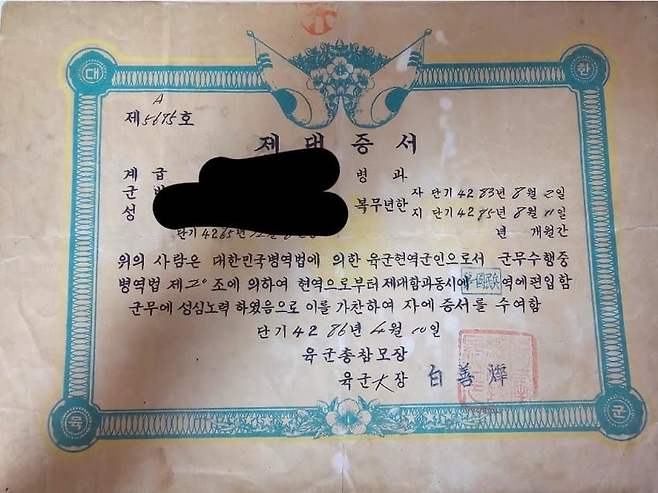 대 한
A
제5675호
제대증서
계급 병과
군번
성
복무년한 자 단기4283년 8월 2일
지 단기4285년 8월 11일
단기4265년
년 개월간
위의 사람은 대한민국병역법에 의한 육군현역군인으로서 군무수행중
병역법 제20조에 의하여 현역으로부터 제대함과동시에 역에편입함
군무에 성심노력 하였음으로 이를 가찬하여 자에 증서를 수여함
단기4286년 4월 10일
육군총참모장
육군大장 白善燁
육 군